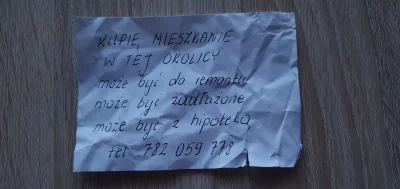 KUPIĘ MIESZKANIE
W TEJ OKOLICY
może być do remontu
może być zadłużone
może być z hipoteką
tel 782 059 778